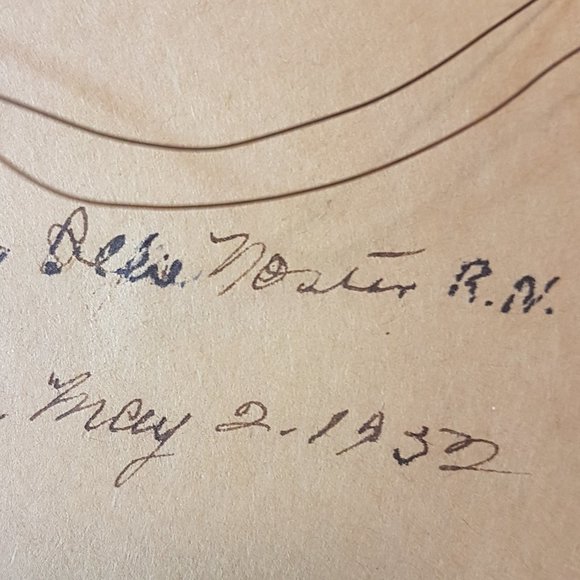 Ollie Noster R.N.
May 2-1932